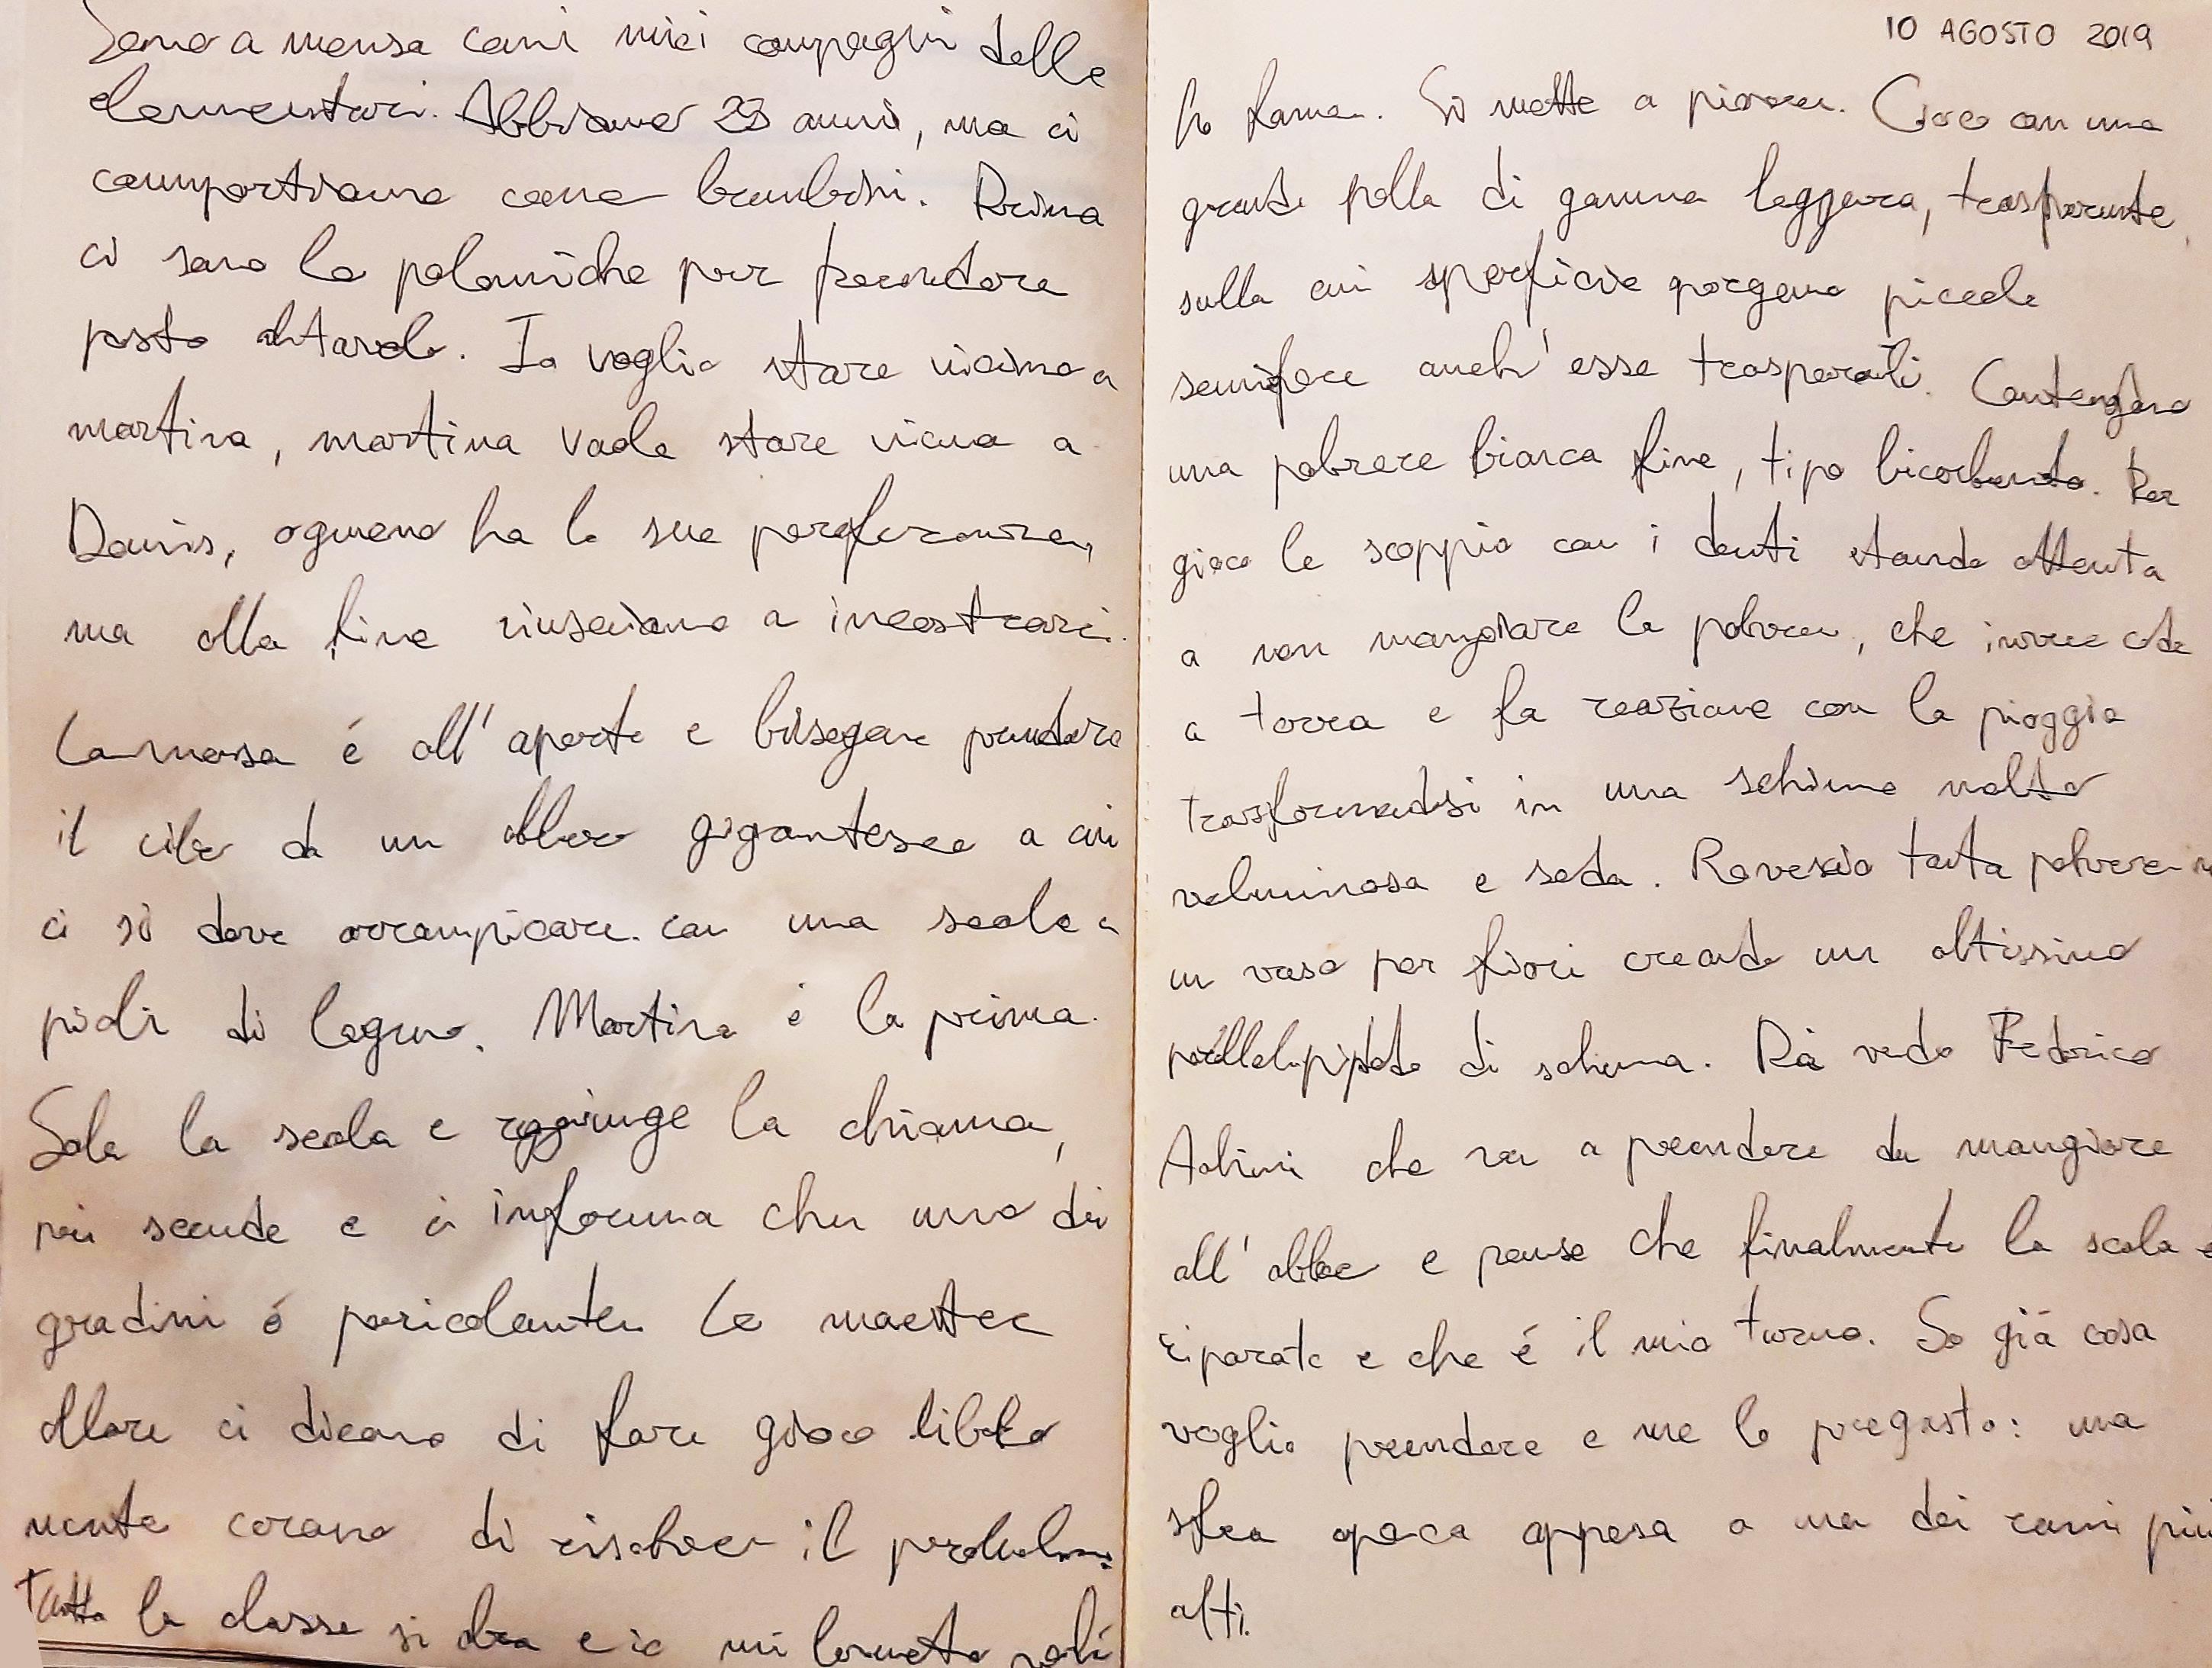 Sono a mensa con i miei compagni delle
elementari. Abbiamo 23 anni, ma ci
comportiamo come bambini. Prima
ci sono le polemiche per prendere
posto al tavolo. Io voglio stare vicino a
martina, martina vuole stare vicina a
Denis, ognuno ha la sua preferenza,
ma alla fine riusciamo a incastrarci.
La mensa é all'aperto e bisogna prendere
il cibo da un albero gigantesco a cui
ci si deve arrampicare con una scala a
pioli di legno. Martina é la prima.
Sale la scala e raggiunge la chioma,
poi scende e ci informa che uno dei
gradini é pericolante. Le maestre
allora ci dicono di fare gioco libero
mentre cercano di risolvere il problema.
Tutta la classe si alza e io mi lamento
10 AGOSTO 2019
ho fame. Si mette a piovere. Gioco con una
grande palla di gomma leggera, trasparente,
sulla cui superficie sporgono piccole
semisfere anch'esse trasparenti. Contengono
una polvere bianca fine, tipo bicarbonato. Per
gioco le scoppio con i denti stando attenta
a non mangiare la polvere, che invece cade
a terra e fa reazione con la pioggia
trasformandosi in una schiuma molto
voluminosa e soda. Rovescio tanta polvere in
un vaso per fiori creando un altissimo
parallelepipedo di schiuma. Poi vedo Federico
che va a prendere da mangiare
all'albero e penso che finalmente la scala é
riparata e che é il mio turno. So giá cosa
voglio prendere e me lo pregusto: una
sfera opaca appesa a uno dei rami piú
alti.